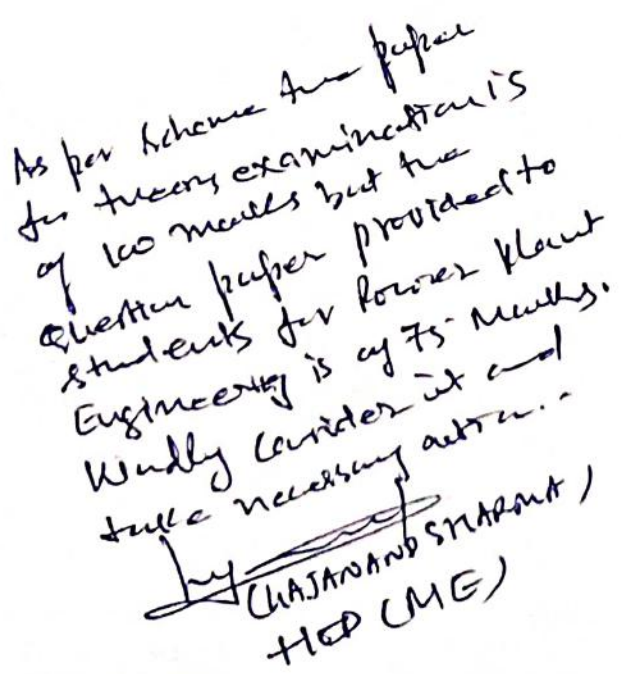 As per Scheme the paper
for theory examination is
of 100 marks but the
Question paper provided to
students for Power Plant
Engineering is of 75 Marks.
Kindly consider it and
take necessary action.
(GAJANAND SHARMA)
HOD (ME)